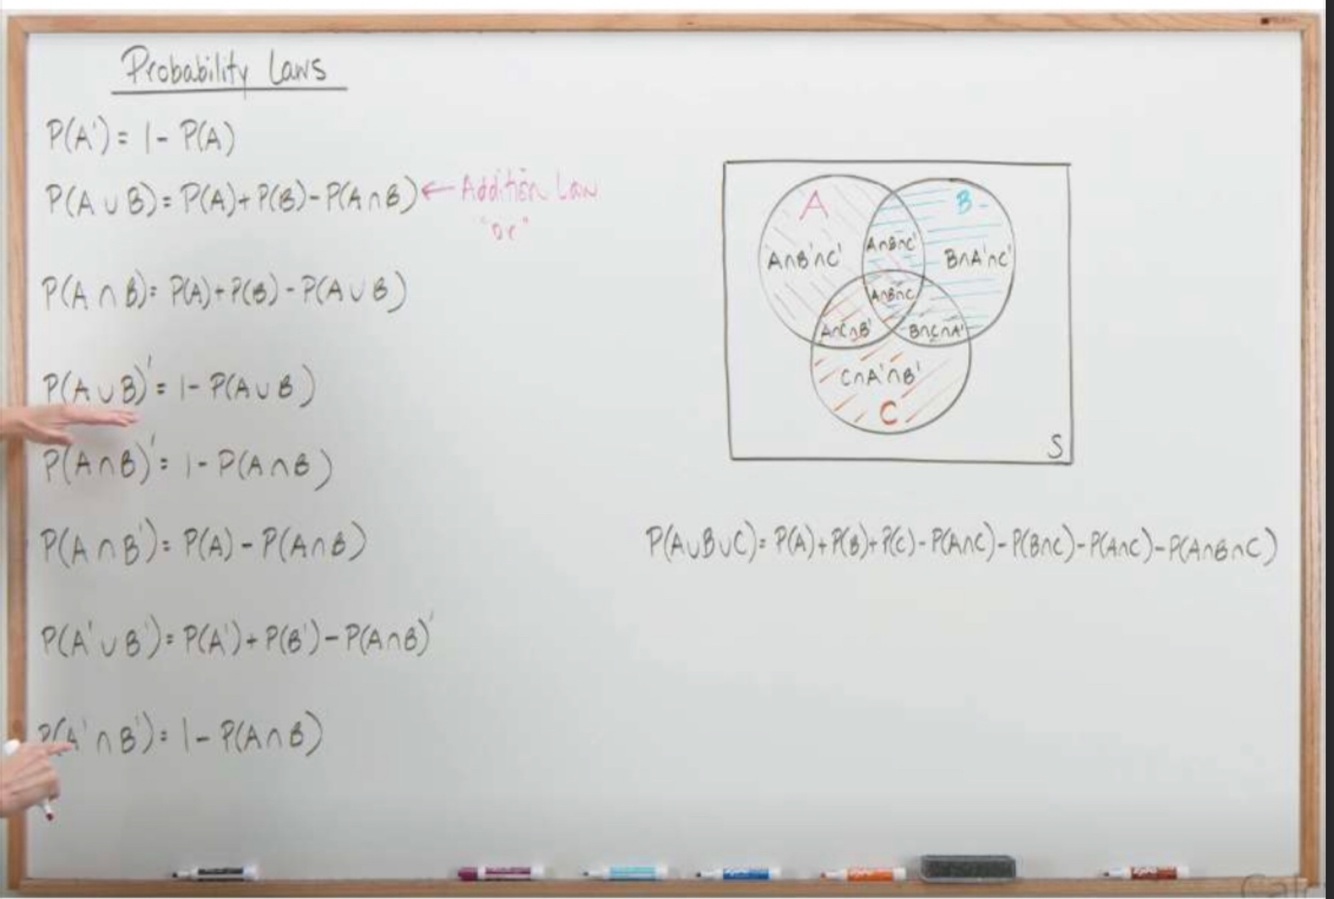 Probability Laws
P(A') = 1 - P(A)
P(A ∪ B) = P(A) + P(B) - P(A ∩ B) ← Addition Law
"or"
P(A ∩ B) = P(A) + P(B) - P(A ∪ B)
P(A ∪ B)' = 1 - P(A ∪ B)
P(A ∩ B)' = 1 - P(A ∩ B)
P(A ∩ B') = P(A) - P(A ∩ B)
P(A' ∪ B') = P(A') + P(B') - P(A ∩ B)'
P(A' ∩ B') = 1 - P(A ∩ B)
A
B
A∩B'∩C'
A∩B∩C'
B∩A'∩C'
A∩B∩C
A∩C∩B'
B∩C∩A'
C∩A'∩B'
C
S
P(A∪B∪C) = P(A) + P(B) + P(C) - P(A∩C) - P(B∩C) - P(A∩C) - P(A∩B∩C)